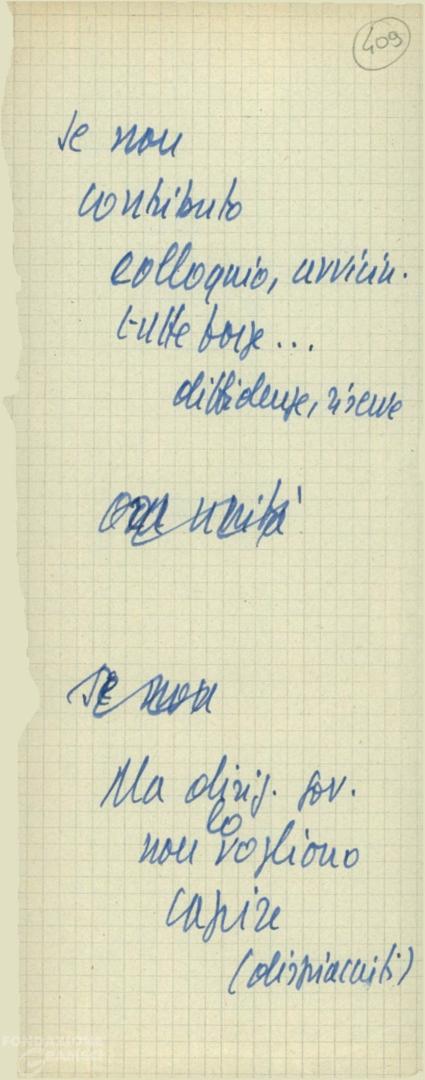 409
se non
contributo
colloquio, avvicin.
tutte forze...
diffidenze, riserve
ora unità
se non
Ma dirig. sov.
non lo vogliono
capire
(dispiaciuti)
FONDAZIONE